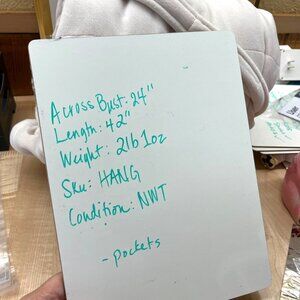 Across Bust: 24"
Length: 42"
Weight: 2lb 1oz
Sku: HANG
Condition: NWT
- pockets